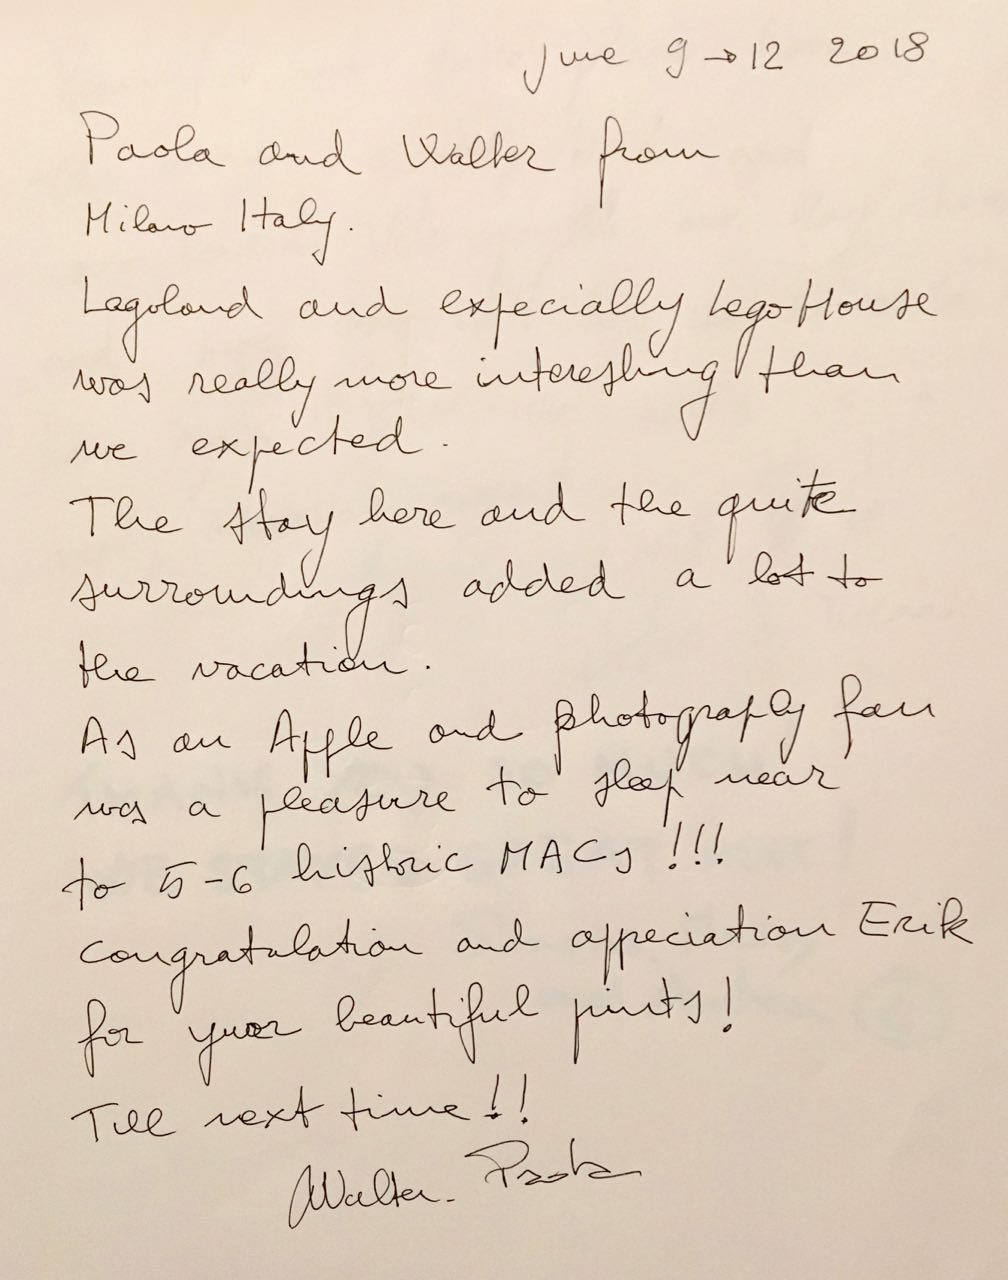 June 9→12 2018
Paola and Walter from
Milano Italy.
Lagoland and expecially Lego House
was really more interesting than
we expected.
The stay here and the quite
surroundings added a lot to
the vacation.
As an Apple and photography fan
was a pleasure to sleep near
to 5-6 historic MACs !!!
Congratulation and appeciation Erik
for your beautiful prints!
Till next time!!
Walter. Paola